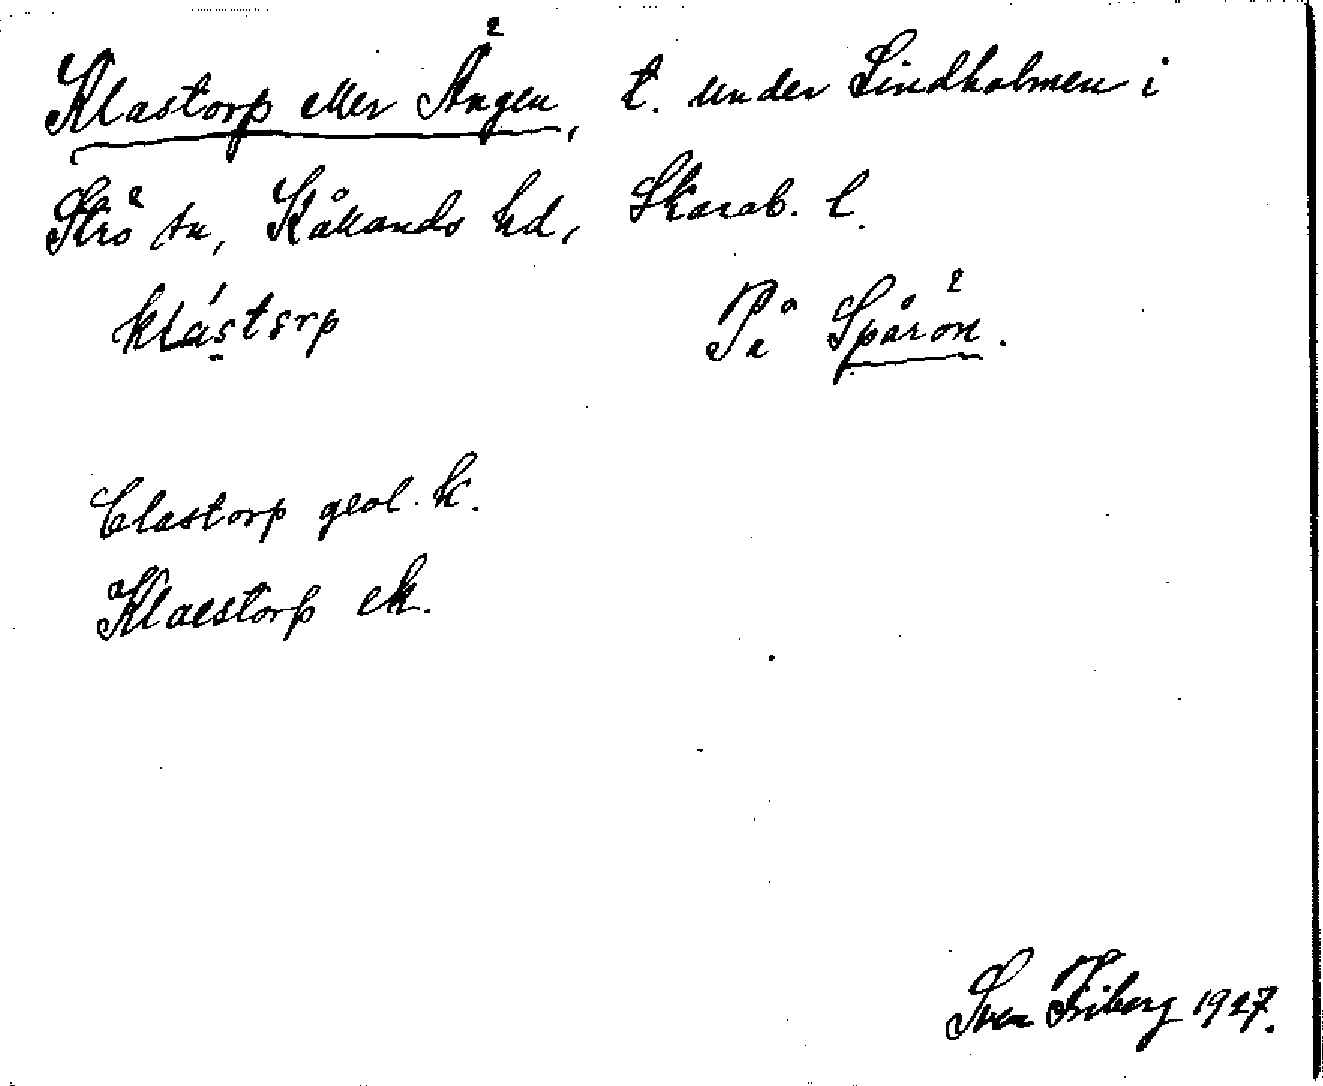 Klastorp eller Ängen, t. under Lindholmen i
Strö sn, Kållands hd, Skarab. l.
klástorp På Spårön.
Clastorp geol. k.
Klaestorp ek.
Sven Friberg 1927.